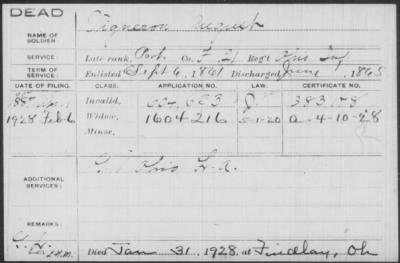 DEAD
NAME OF SOLDIER: Vigneron August
SERVICE: Late rank, Co. F. 21 Reg't Ohio Inf
TERM OF SERVICE: Enlisted Sept 6, 1861 Discharged June 1, 1865
DATE OF FILING. CLASS. APPLICATION NO. CERTIFICATE NO.
Invalid,
1928 Feb 6 Widow, 1604216 5-1-20 A-4-10-28
Minor,
ADDITIONAL SERVICES: Ohio
REMARKS:
Died Jan 31, 1928, at Findlay, Oh